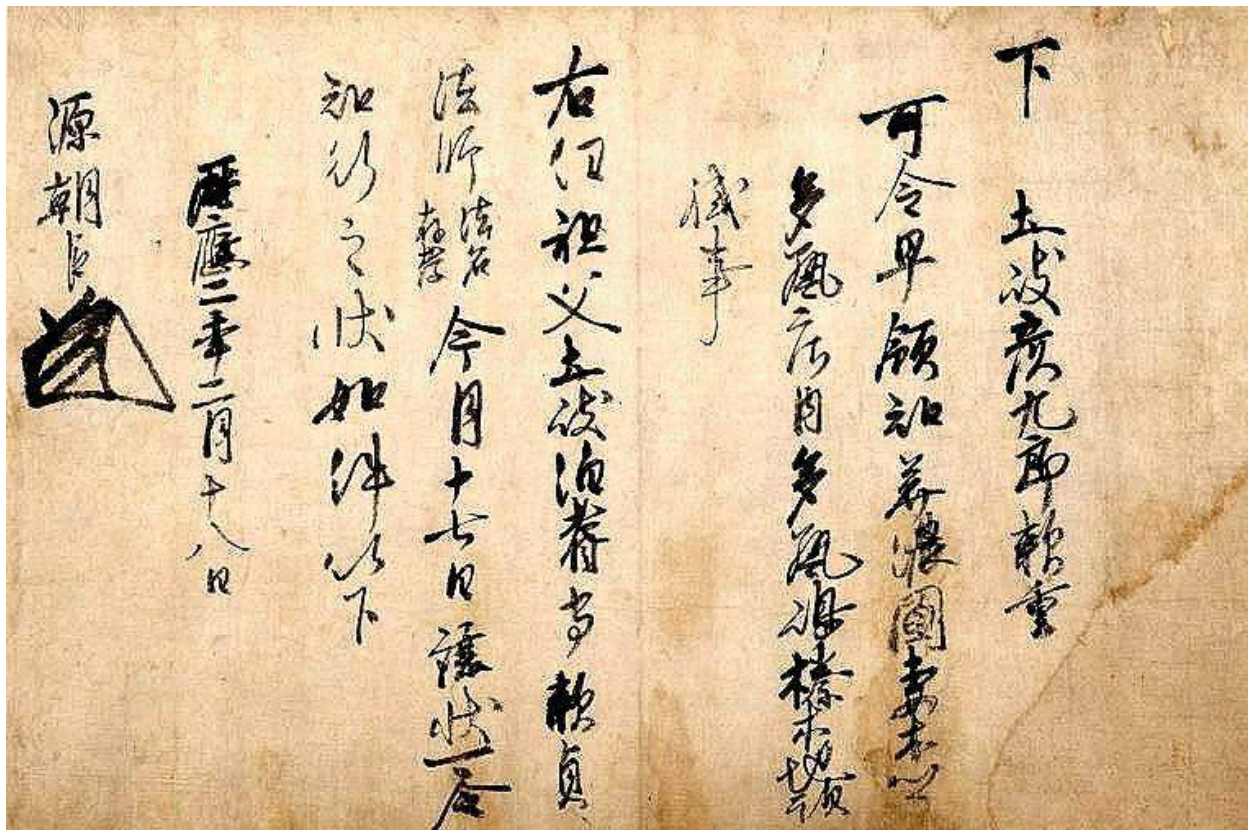 下　土岐彦九郎頼重
可令早領知美濃國妻木郷
多藝庄内多藝嶋榛木地頭
職事
右任祖父土岐伯耆守頼貞
法師法名存孝今月十七日譲状可令
知行之状如件以下
暦應二年二月十八日
源朝臣